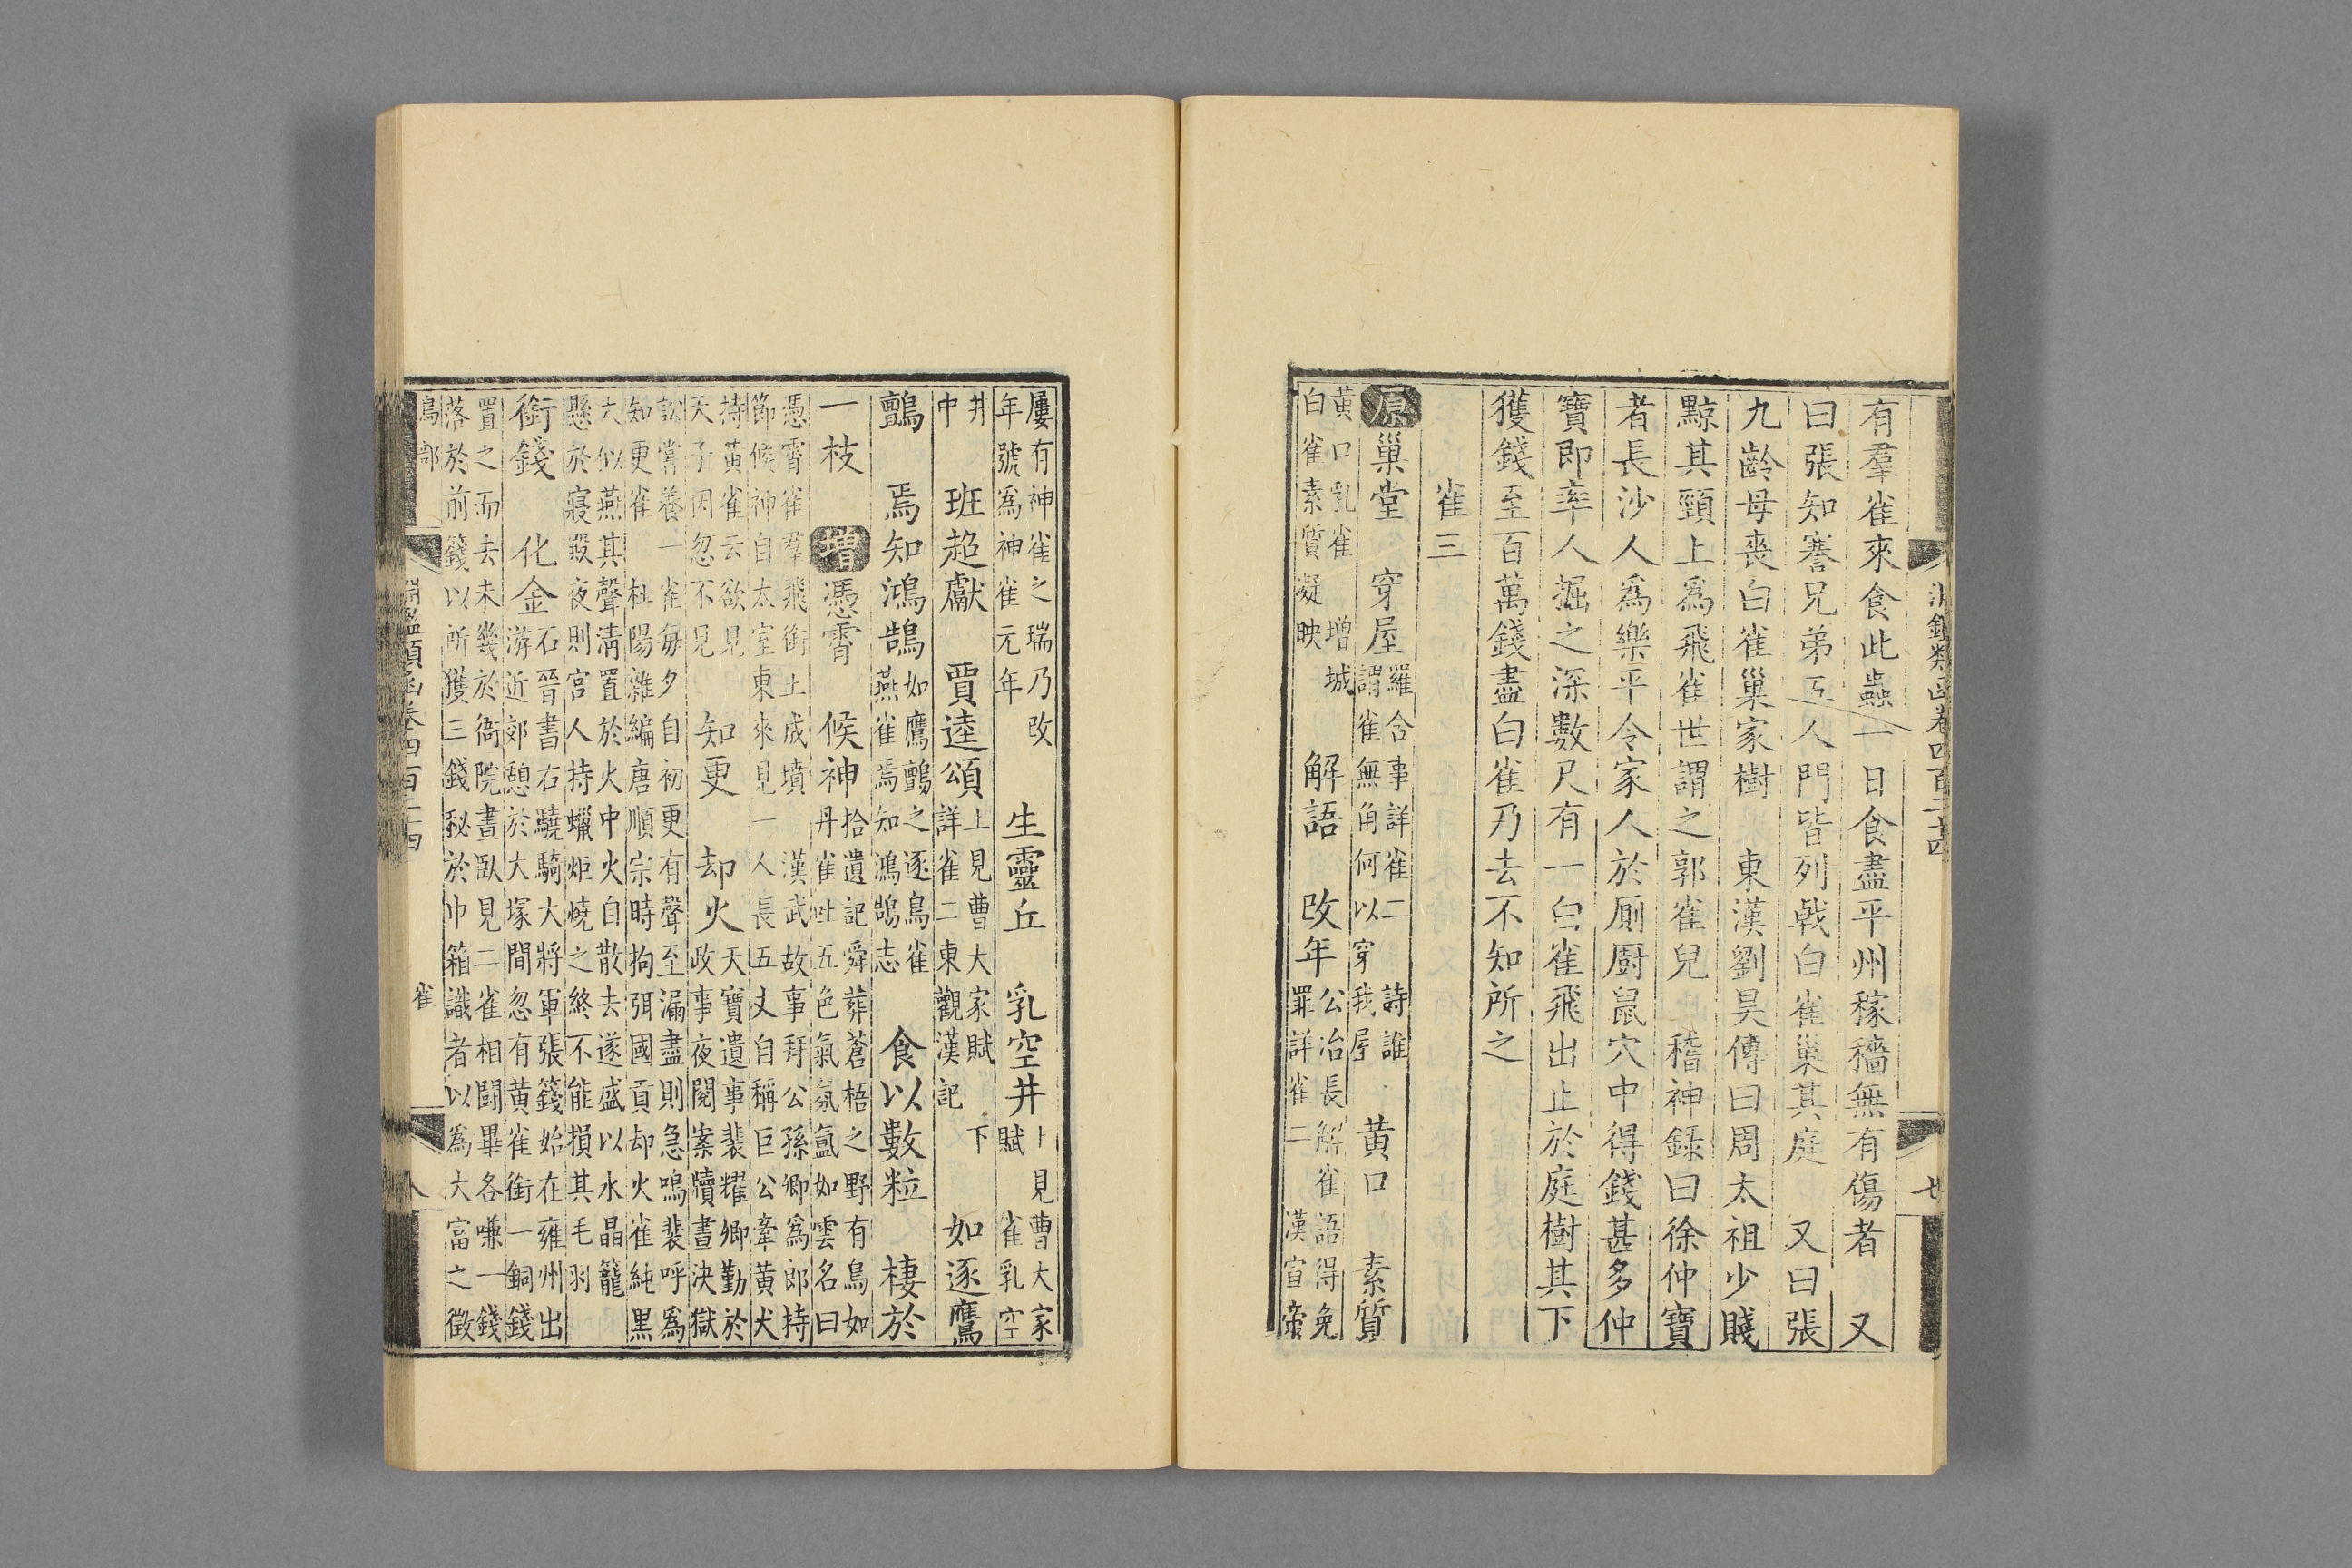 淵鑑類函卷四百二十四 七
有羣雀來食此蟲一日食盡平州稼穡無有傷者 又
曰張知謇兄弟五人門皆列戟白雀巢其庭 又曰張
九齡母喪白雀巢家樹 東漢劉昊傳曰周太祖少賤
黥其頸上爲飛雀世謂之郭雀兒 稽神錄曰徐仲寶
者長沙人爲樂平令家人於厠廚鼠穴中得錢甚多仲
寶即率人掘之深數尺有一白雀飛出止於庭樹其下
獲錢至百萬錢盡白雀乃去不知所之
雀三
原巢堂 穿屋 羅含事詳雀二 詩誰謂雀無角何以穿我屋 黄口 素質
黄口乳雀 增城白雀素質凝映 解語 改年 公冶長解雀語得免罪詳雀二 漢宣帝
屢有神雀之瑞乃改年號爲神雀元年 生靈丘 乳空井 上見曹大家賦 雀乳空
井中 班超獻 賈逵頌 上見曹大家賦 下詳雀二東觀漢記 如逐鷹
鸇 焉知鴻鵠 如鷹鸇之逐鳥雀 燕雀焉知鴻鵠志 食以數粒 棲於
一枝 增憑霄 候神 拾遺記舜葬蒼梧之野有鳥如丹雀吐五色氣氛氳如雲名曰
憑霄雀羣飛銜土成墳 漢武故事拜公孫卿爲郎持節候神自太室東來見一人長五丈自稱巨公牽黄犬
持黄雀云欲見天子因忽不見 知更 却火 天寶遺事裴耀卿勤於政事夜閱案牘晝決獄
訟嘗養一雀每夕自初更有聲至漏盡則急鳴裴呼爲知更雀 杜陽雜編唐順宗時拘弭國貢却火雀純黑
大似燕其聲清置於火中火自散去遂盛以水晶籠懸於寢殿夜則宮人持蠟炬燒之終不能損其毛羽
銜錢 化金 石晉書右驍騎大將軍張籛始在雍州出游近郊憩於大塚間忽有黄雀銜一銅錢
置之而去未幾於衙院晝臥見二雀相鬪畢各嗛一錢落於前籛以所獲三錢秘於巾箱識者以爲大富之徵
鳥部 雀
淵鑑類函卷四百二十四 八